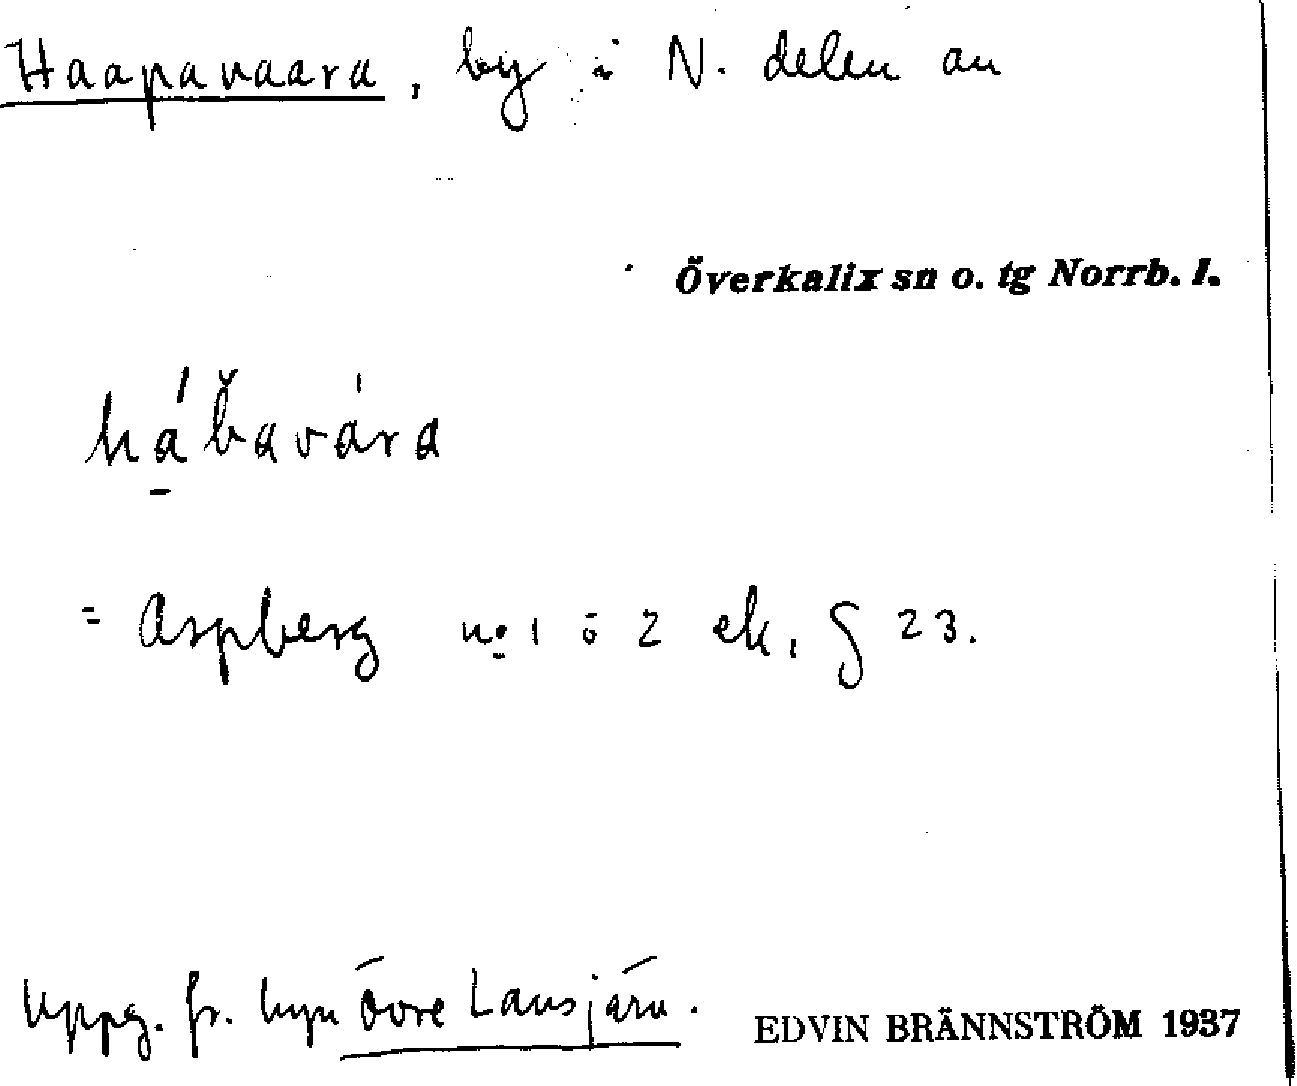 Haapavaara, by i N. delen av
Överkalix sn o. tg Norrb. l.
= Aspberg no 1 o 2 ek. § 23.
Uppg. fr. byn Övre Lansjärv.
EDVIN BRÄNNSTRÖM 1937